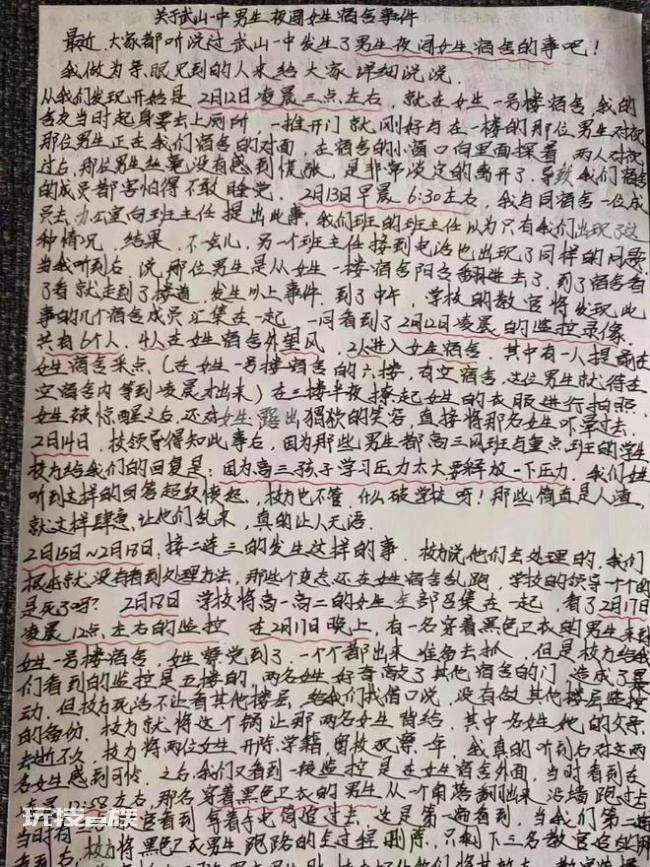 关于武山一中男生夜闯女生宿舍事件
最近大家都听说过武山一中发生了男生夜闯女生宿舍的事吧！
我做为亲眼见到的人来给大家详细说说.
从我们发现开始是2月12日凌晨三点左右，就在女生一号楼宿舍，我的
舍友当时起身要去上厕所，一推开门就刚好与在一楼的那位男生对视
那位男生正在我们宿舍的对面，在宿舍的小窗口向里面探着 两人对视
过后，那位男生丝毫没有感到慌张，是非常淡定的离开了，导致我们宿舍
的成员都害怕得不敢睡觉. 2月13日早晨6:30左右，我与同宿舍一位成
员去办公室向班主任提出此事，我们班的班主任以为只有我们出现了这
种情况，结果，不一会儿，另一个班主任接到电话也出现了同样的问题
当我听到后，说那位男生是从女生一楼宿舍阳台翻进去了，到了宿舍看
了看就走到了楼道，发生以上事件. 到了中午，学校的教官将发现此
事的几个宿舍成员汇集在一起，一同看到了2月12日凌晨的监控录像.
共有6个人，4人在女生宿舍外望风，2人进入女生宿舍，其中有一人提前在
女生宿舍采点，(在女生一号楼宿舍的六楼，有空宿舍，这位男生就待在
空宿舍内等到凌晨才出来)在三楼半夜撩起女生的衣服进行拍照
女生被惊醒之后，还对女生露出猥欲的笑容，直接将那名女生吓晕过去.
2月14日，校领导得知此事后，因为那些男生都高三风班与重点班的学生
校方给我们的回复是：因为高三孩子学习压力太大，要释放一下压力. 我们女生
听到这样的回答超级愤怒，校方也不管，什么破学校呀！那些简直是人渣，
就这样肆意，让他们乱来，真的让人无语.
2月15日~2月18日：接二连三的发生这样的事，校方说他们会处理的，我们
根本就没有看到处理方法，那些个变态还在女生宿舍乱跑，学校的领导一个个的
是死了吗？ 2月18日 学校将高一高二的女生全部召集在一起，看了2月17日
凌晨12点左右的监控 在2月17日晚上，有一名穿着黑色卫衣的男生来到
女生一号楼宿舍，女生察觉到了，一个个都出来准备去抓，但是校方给我
们看到的监控是五楼的，两名女生好奇敲了其他宿舍的门，造成了暴
动，但校方死活不让看其他楼层，给我们找借口说，没有做其他楼层监控
的备份. 校方就将这个锅让那两名女生背给，其中一名女生她的父亲
去逝不久，校方将两位女生开除学籍，留校观察一年，我真的听到后对这两
名女生感到可怜. 之后，我们又看到一段监控是在女生宿舍外面，当时看到在
左右，那名穿着黑色卫衣的男生从一个角落翻出来 沿墙跑过去
当时有 看到 拿着手电筒追过去，这是第一遍看到，当我们第二遍
看到后，校方将黑色卫衣男生跑路的全过程删除，只剩下三名教官追